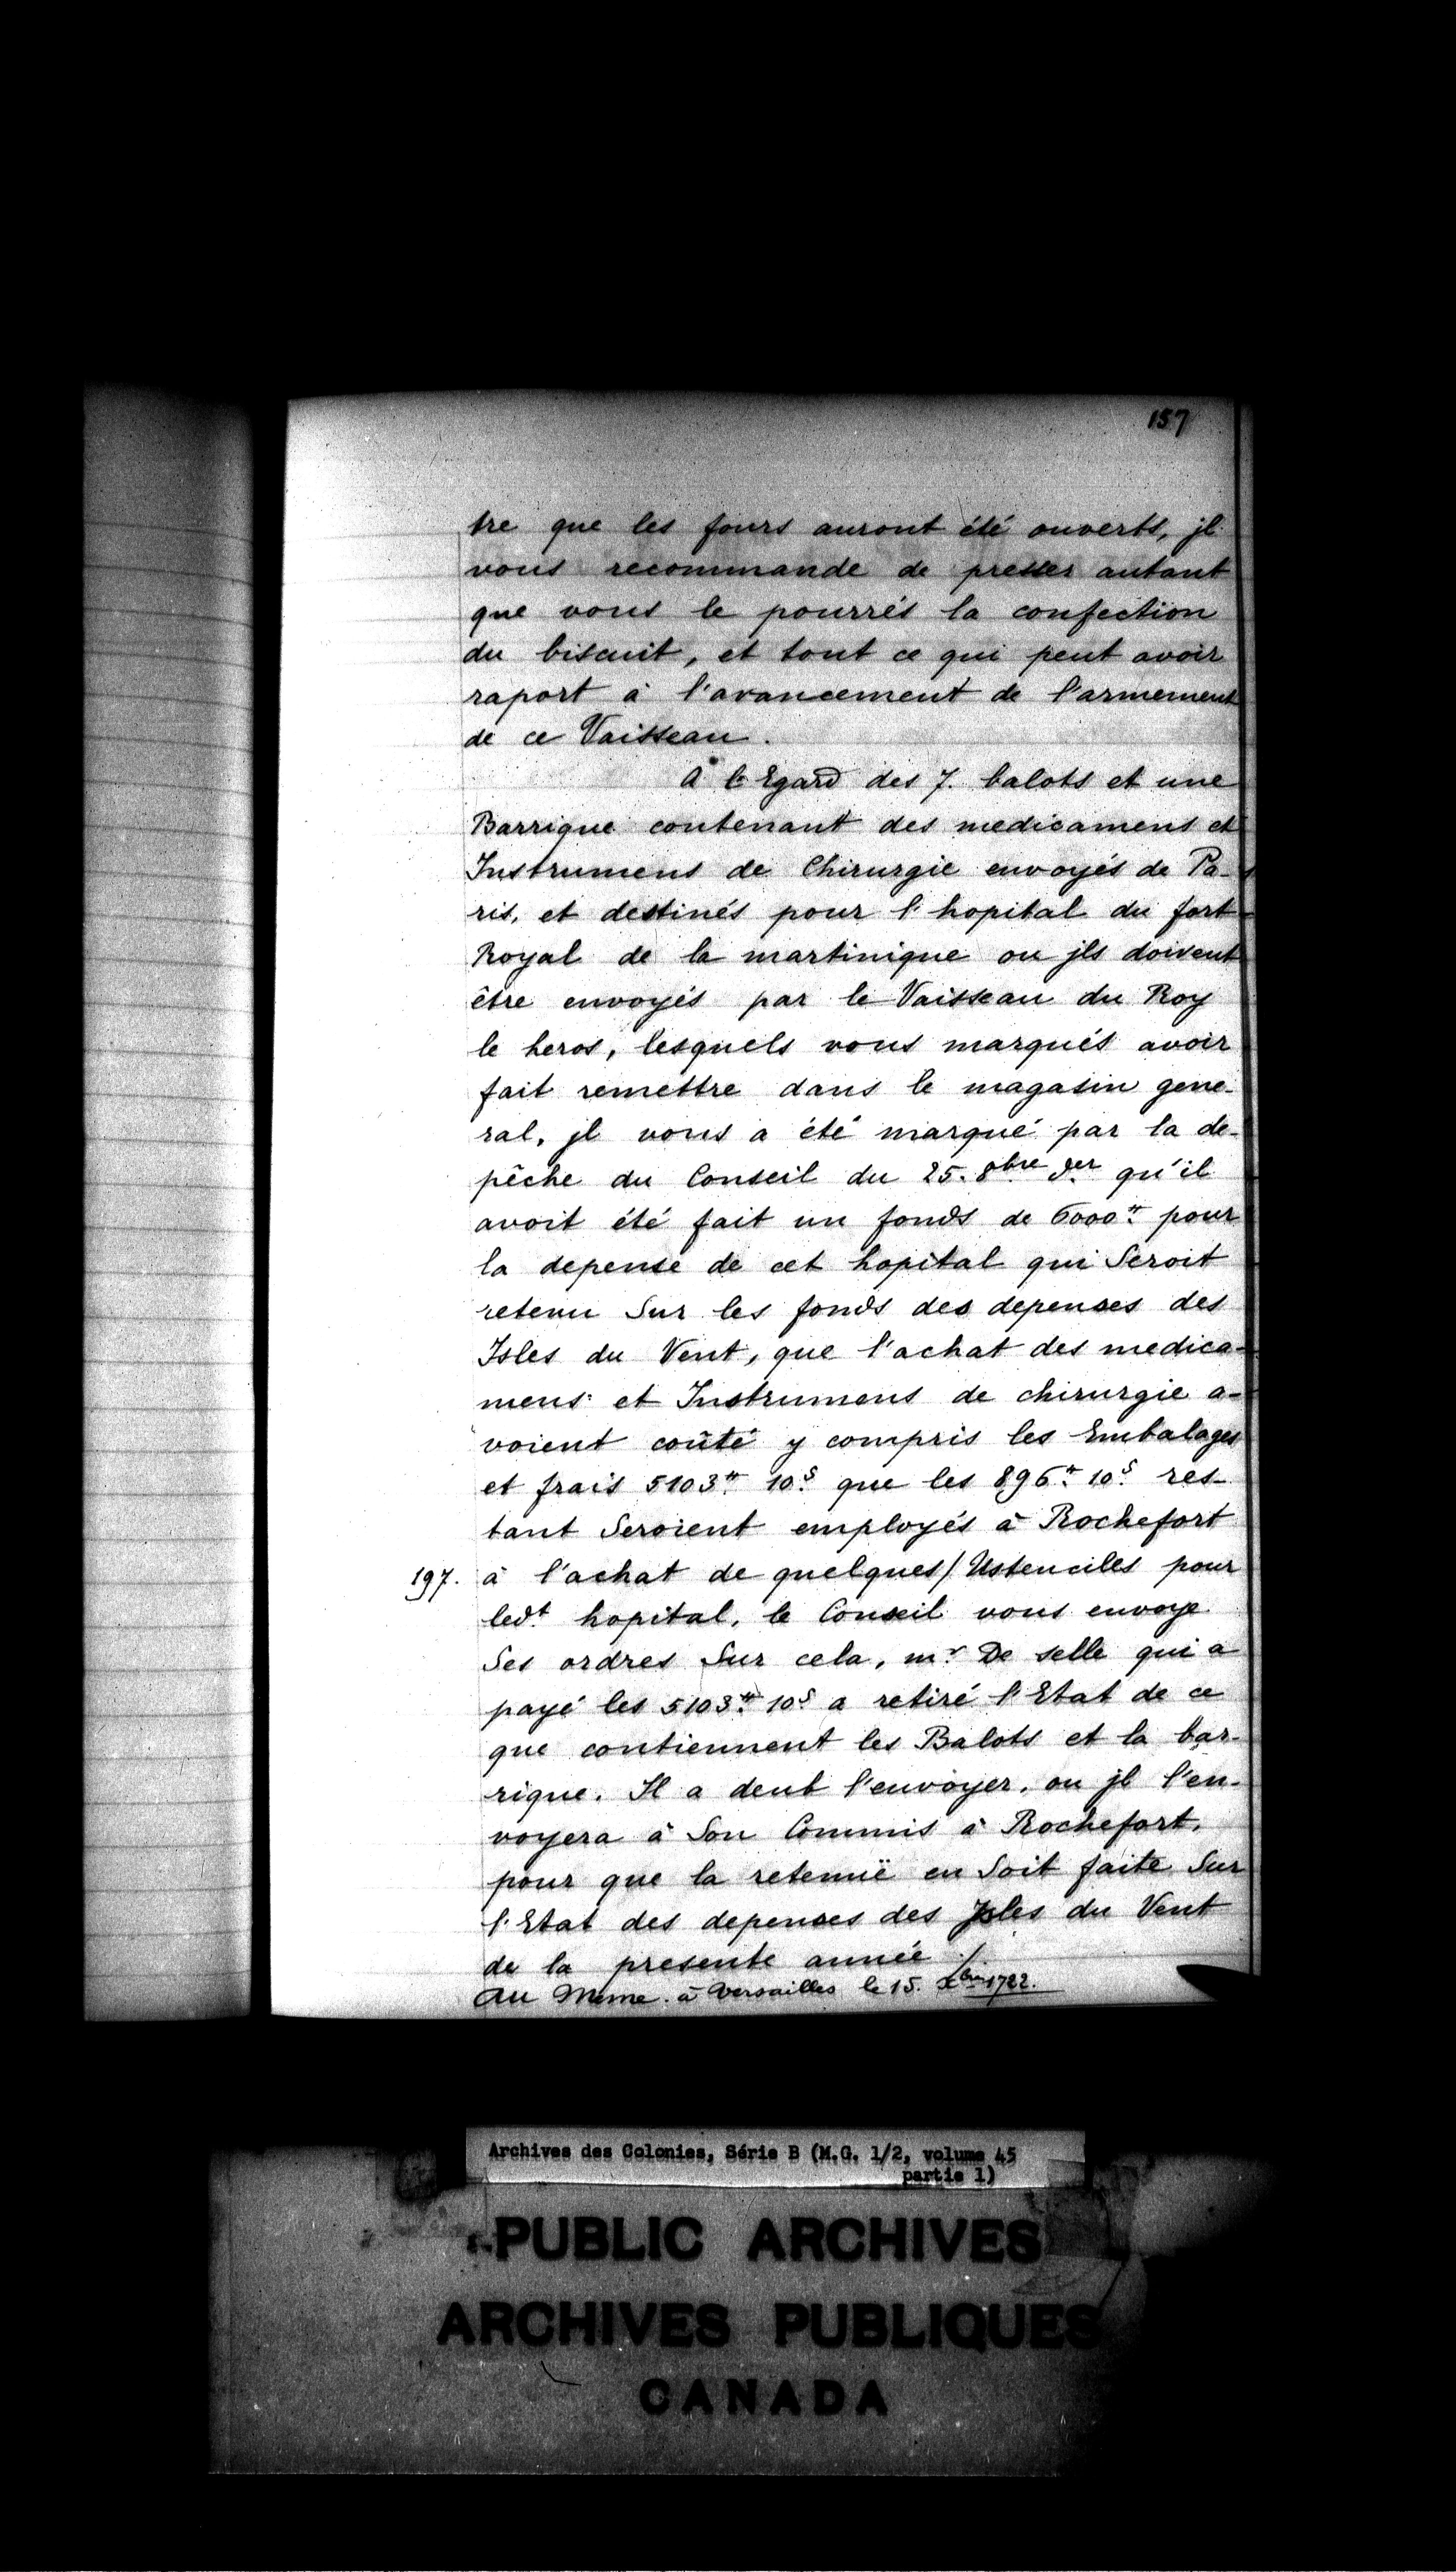 157
tre que les fours auront été ouverts, jl
vous recommande de presser autant
que vous le pourrés la confection
du biscuit, et tout ce qui peut avoir
raport à l'avancement de l'armement
de ce Vaisseau.
A l'Egard des 7. balots et une
Barrique contenant des medicamens et
Instrumens de Chirurgie envoyés de Pa-
ris, et destinés pour l'hopital du fort
Royal de la martinique ou jls doivent
être envoyés par le Vaisseau du Roy
le heros, lesquels vous marqués avoir
fait remettre dans le magasin gene-
ral, jl vous a été marqué par la de-
pêche du Conseil du 25. 8bre der qu'il
avoit été fait un fonds de 6000tt pour
la depense de cet hopital qui Seroit
retenu Sur les fonds des depenses des
Isles du Vent, que l'achat des medica-
mens et Instrumens de chirurgie a-
voient coûté y compris les Embalages
et frais 5103tt 10s que les 896tt 10s res-
tant Seroient employés à Rochefort
197. à l'achat de quelques/Ustenciles pour
ledt hopital, le Conseil vous envoye
Ses ordres Sur cela, mr De selle qui a
payé les 5103tt 10s a retiré l'Etat de ce
que contiennent les Balots et la bar-
rique. Il a deub l'envoyer, ou jl l'en-
voyera à Son Commis à Rochefort,
pour que la retenuë en Soit faite Sur
l'Etat des depenses des Isles du Vent
de la presente année ./.
Au Meme. à Versailles le 15. Xbre 1722.
Archives des Colonies, Série B (M.G. 1/2, volume 45
partie 1)
PUBLIC ARCHIVES
ARCHIVES PUBLIQUES
CANADA